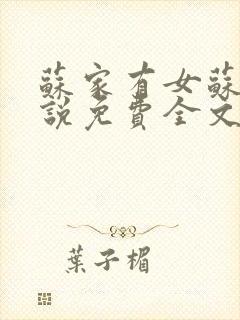 蘇家有女蘇
說免費全文
葉子楣